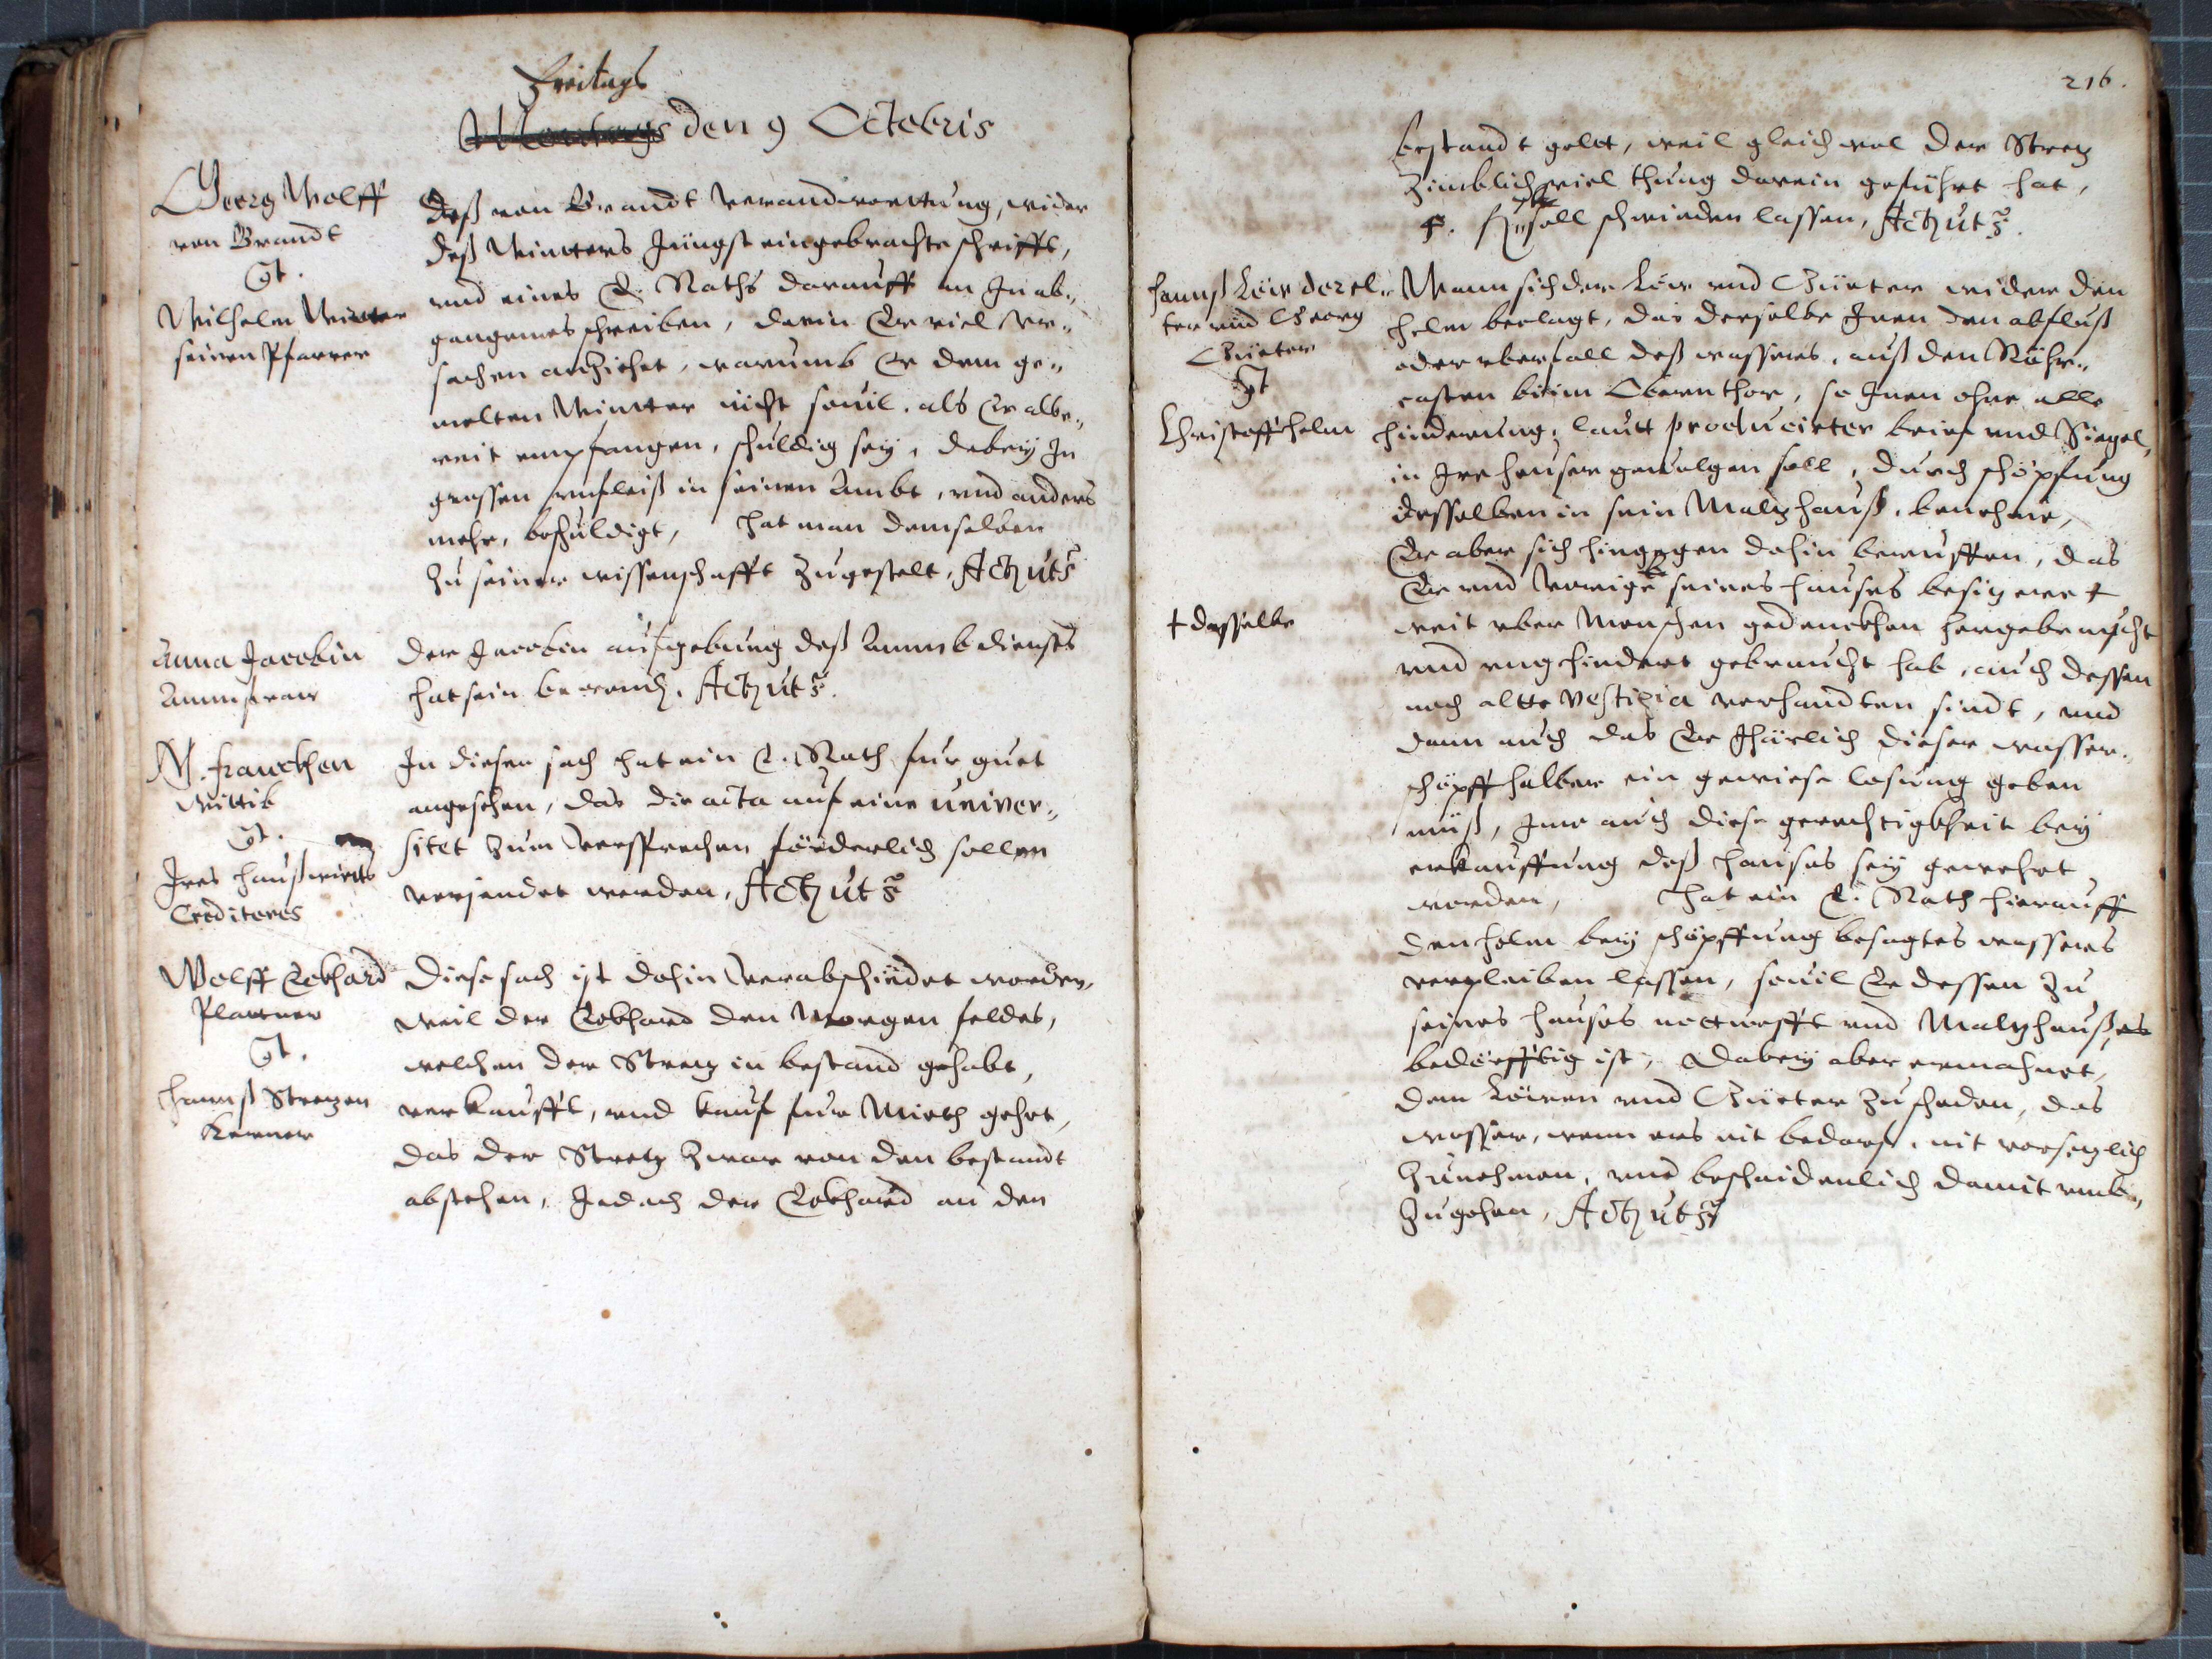 Freitags
Montags den 9 Octobris
Georg Wolff
von Brandt
Ct.
Wilhelm Winter
seinen Pfarrer
Deß von Brandt verandtworttung, wider
deß Winters Jüngst eingebrachte schrifft,
vnd eines E. Raths darauff an In ab„
gangenes schreiben, darin Er viel vr„
sachen anzichet, warumb Er dem ge„
melten Winter nicht souil, als Er albe„
reit empfangen, schuldig sey, dabey In
grossen vnfleiß in seinen Ambt, vnd anders
mehr, beschuldigt, hat man demselben
zu seiner wissenschafft zugestelt, Act. ut s.
Anna Jacobin
Ammfraw
Der Jacobin aufgebung deß Ammbdienstes
hat sein bewenden, Act. ut s.
M. Franckhen
Wittib
Ct.
Ires haußwirts
Creditores
In dieser sach hat ein E. Rath fur guet
angesehen, das die acta auf eine univer„
sitet zum versprechen förderlich sollen
versendet werden, Act. ut s.
Wolff Eckhard
Plattner
Ct.
Hannß Stretzen
Kerner
Diese sach ist dahin verabschiedet worden,
weil der Eckhard den Morgen feldes,
welchen der Stretz in bestand gehabt,
verkaufft, vnd kauf fur Mieth gehet,
das der Stretz zwar von den bestandt
abstehen, Jedoch der Eckhard an den
216.
bestandt gelt, weil gleichwol der Stretz
zimblich viel thung darein geführt hat,
soll schwinden lassen, Act. ut s.
Hannß Löw der el„
ter vnd Georg
Güeter
Ct
Christoff Helm
Wann sich der Löw vnd Güeter wider den
Helm beclagt, das derselbe Inen den abfluß
oder vberfall deß wassers, auß den Röhr„
casten beim Obernthor, so Inen ohne alle
hinderung, lautt producirter brief vnd Siegel,
in Ire heuser gevolgen soll, durch schöpfung
desselben in sein Maltzhauß, benehme,
Er aber sich hingegen dahin beruffen, das
Er vnd vorige seines hauses besitzere +
+ dasselbe
weit vber Menschen gedenckhen hergebracht
vnd vngehindert gebraucht hab, auch dessen
noch altte vestigia verhandten sindt, vnd
dann auch das Er Jharlich dieser wasser„
schöpff halber ein gewiese losung geben
muß, Ime auch diese gerechtigkheit bey
erkauffung deß hauses sey gewehret
worden, Hat ein E. Rath hierauff
den Helm bey schöpffung besagtes wassers
verpleiben lassen, souil Er dessen zu
seines hauses notturfft vnd Maltzhauses
bedörfftig ist, Dabey aber ermahnet,
dem Löwen vnd Güeter zuschaden, das
wasser, wenn ers nit bedarf, nit vorsetzlich
zunehmen, vnd bescheidenlich damit vmb„
zugehen, Act. ut s.